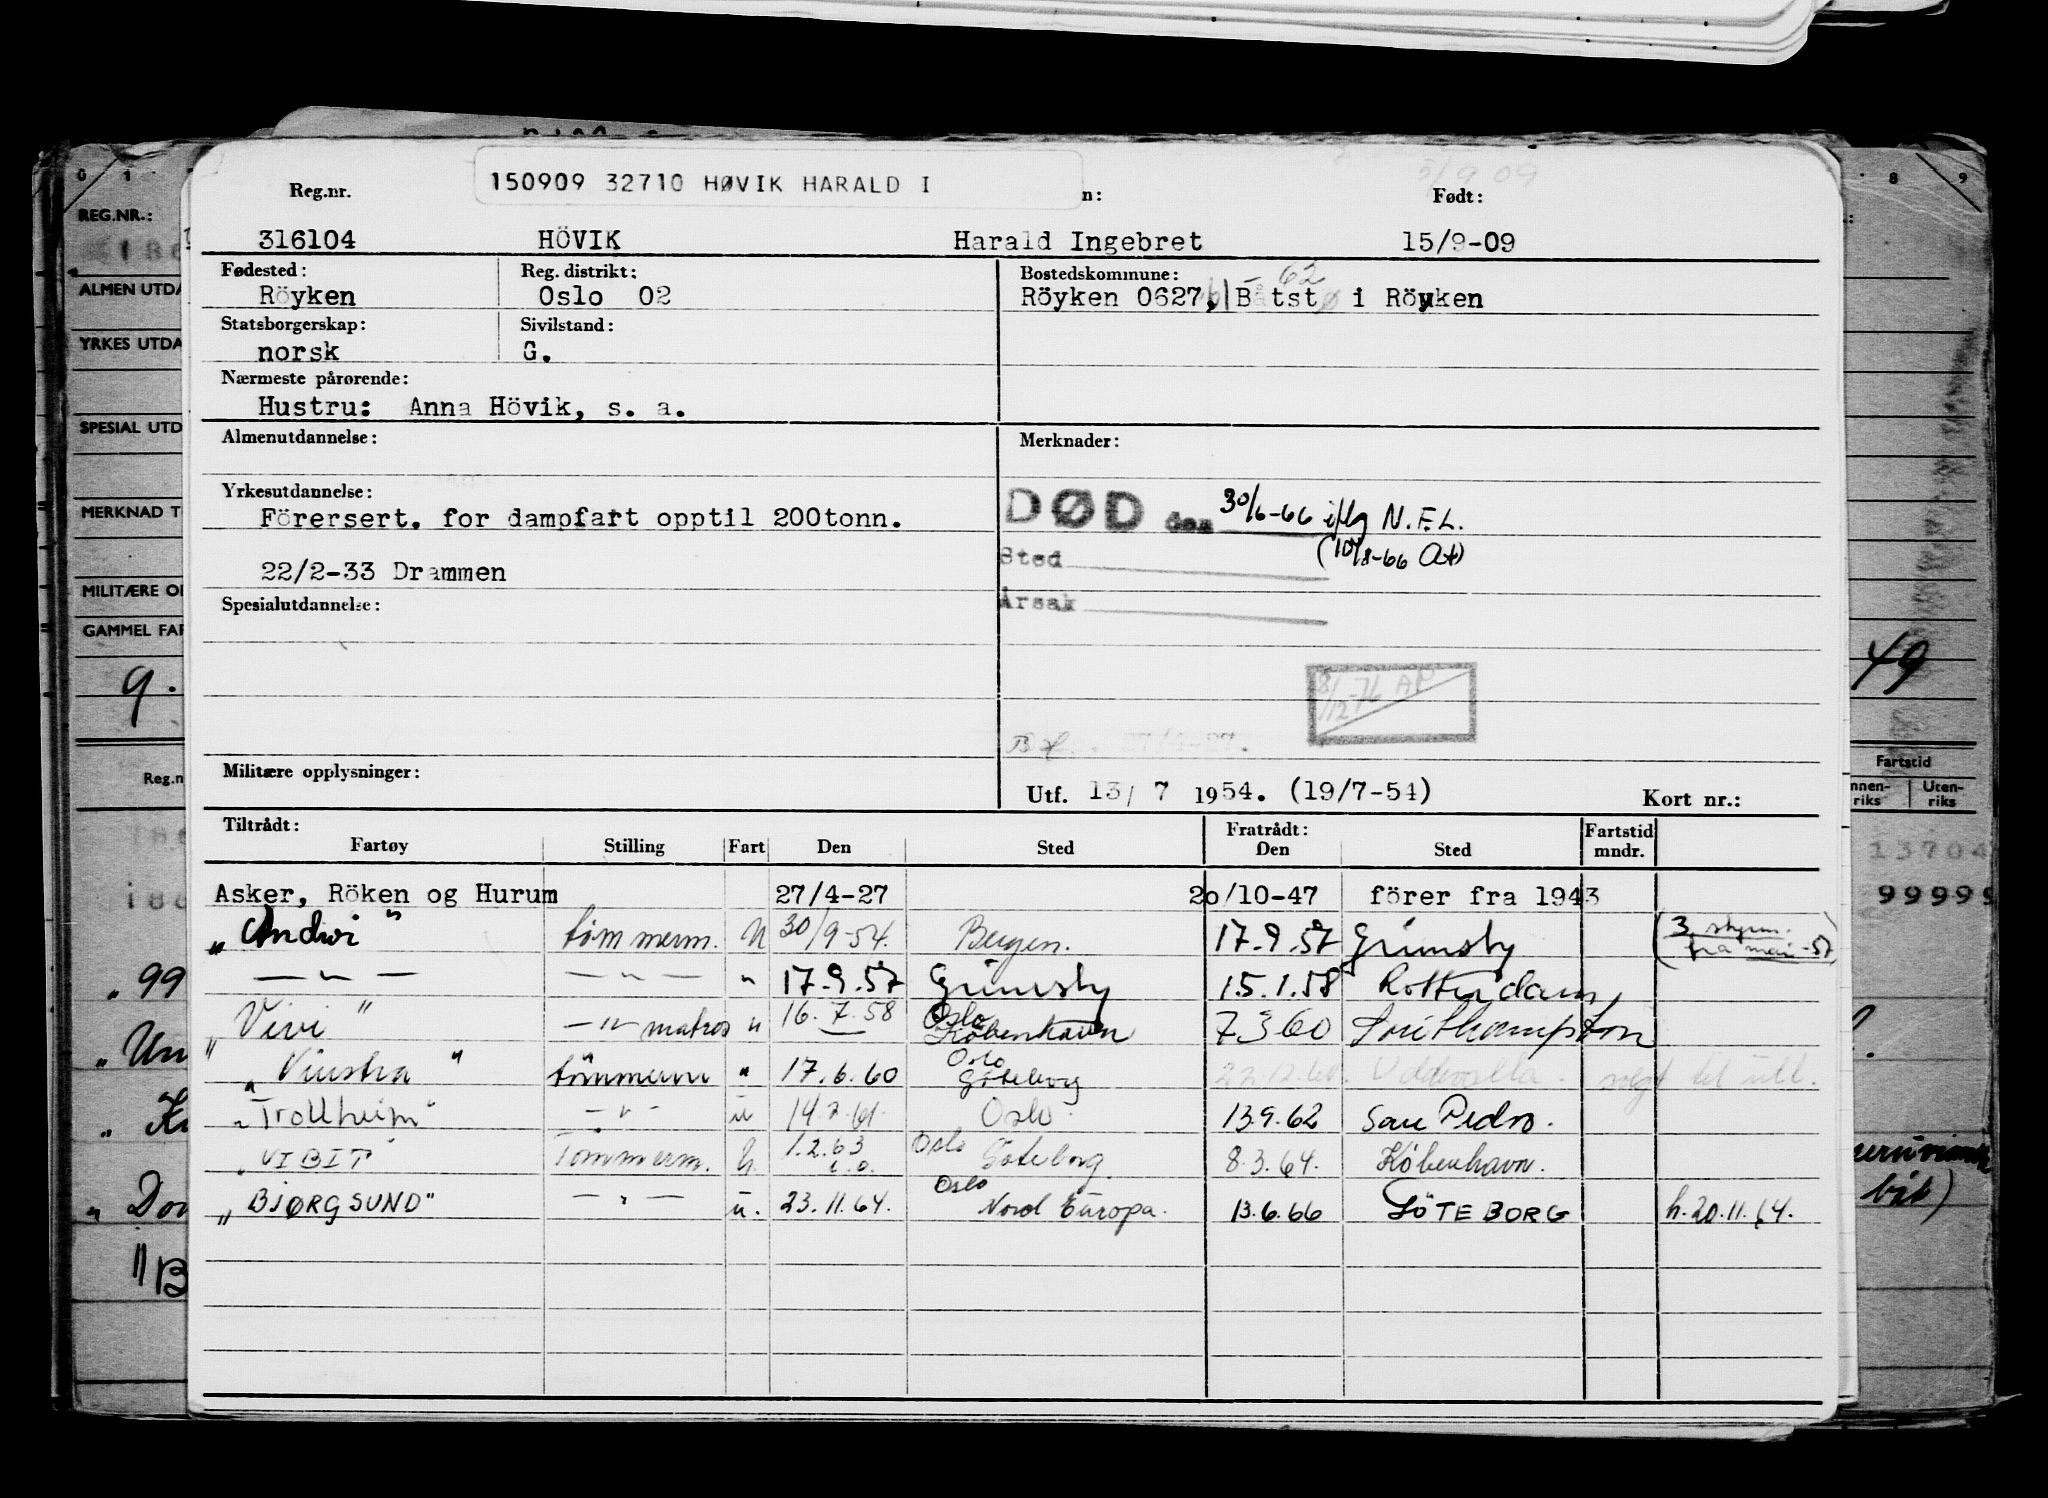 150909 32710 HØVIK HARALD I
Reg.nr. n: Født:
316104 HÖVIK Harald Ingebret 15/9-09
Fødested: Reg. distrikt: Bostedskommune:
Röyken Oslo 02 Röyken 0627, Båtstø i Röyken
62
Statsborgerskap: Sivilstand:
norsk G.
Nærmeste pårørende:
Hustru: Anna Hövik, s. a.
Almenutdannelse: Merknader:
Yrkesutdannelse:
DØD den 30/6-66 iflg N.F.L.
Förersert. for dampfart opptil 200tonn.
(10/8-66 At)
Sted
22/2-33 Drammen
Årsak
Spesialutdannelse:
8/12-76 AP
Militære opplysninger:
Utf. 13/ 7 1954. (19/7-54) Kort nr.:
Tiltrådt: Fratrådt: Fartstid
Fartøy Stilling Fart Den Sted Den Sted mndr.
Asker, Röken og Hurum 27/4-27 20/10-47 förer fra 1943
„Andwi" tömmerm. U 30/9-54. Bergen. 17.9.57 Grimsby (3. styrm. fra mai -57)
— " — — " — " 17.9.57 Grimsby 15.1.58 Rotterdam,
„Vivi" — " — matros u 16.7.58 Oslo København 7 3 60 Southampton
„Vinstra" tömmerm " 17.6.60 Oslo Göteborg 22.12.60. Uddevalla.
„Trollheim" — " — u 14.2.61 Oslo. 13.9.62 San Pedro.
„VIBIT" Tömmerm. U. 1.2.63 Oslo Göteborg. 8.3.64. København.
„BJØRGSUND" — " — u. 23.11.64. Oslo Nord Europa. 13.6.66 GÖTEBORG h.20.11.64.
REG.NR.:
ALMEN UTDA
YRKES UTDA
SPECIAL UTD
MERKNAD T
MILITÆRE O
GAMMEL FAR
9. 49
Reg.n
Fartstid
nnen-riks Uten-riks
13704
99999
„99
„Un
„Dor
"B